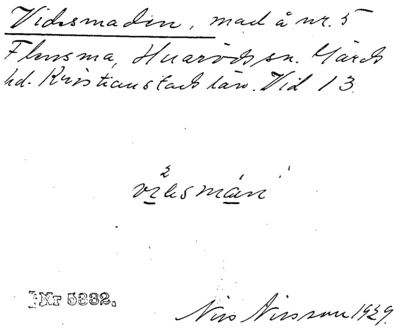 Vidsmaden, mad å nr. 5
Flusma, Huaröds sn. Gärds
hd. Kristianstads län. Vid 13.
2
vidsmán
Nr 5332.
Nils Nilsson 1929.